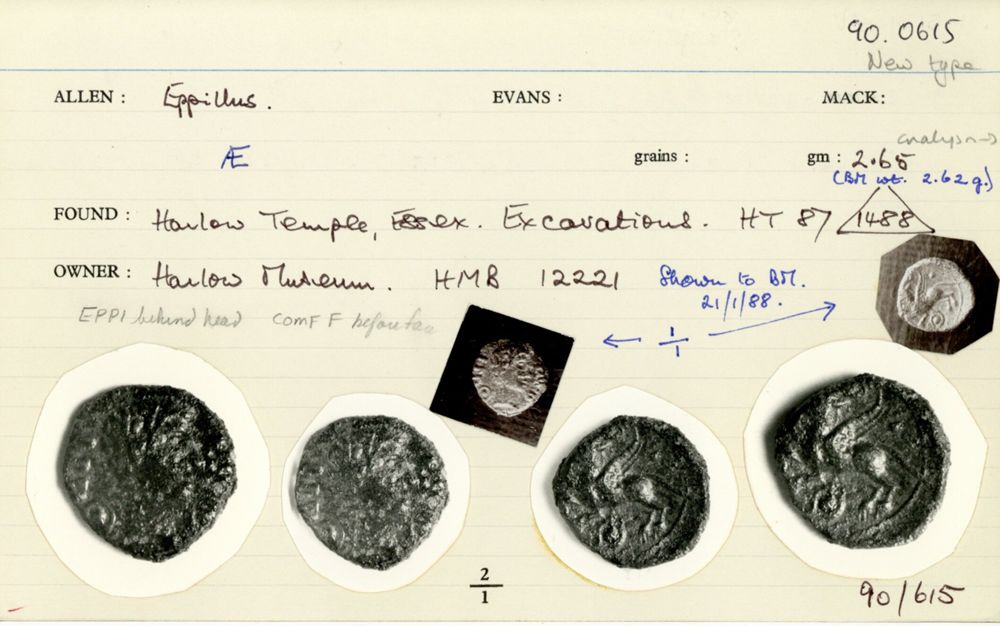 90.0615
New type
ALLEN : Eppillus. EVANS : MACK:
analysis →
Æ grains : gm : 2.65
(BM wt. 2.62g.)
FOUND : Harlow Temple, Essex. Excavations. HT 87 1488
OWNER : Harlow Museum. HMB 12221 Shown to BM.
21/1/88.
EPPI behind head COMF F before face
← 1/1 →
2/1
90/615